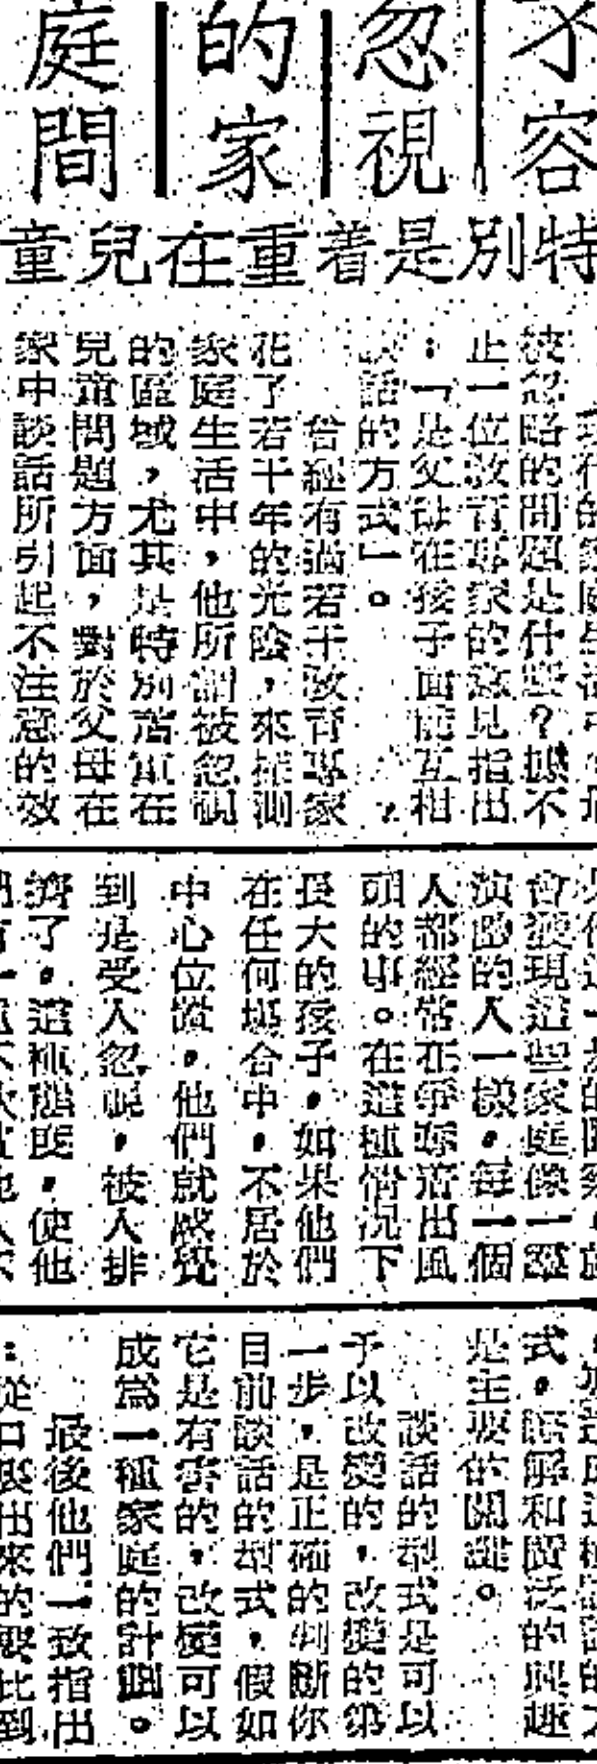 不容
忽視
的家
庭間
特別是着重在兒童
現代的家庭生活中，最
被忽略的問題是什麼？據不
止一位教育專家的意見指出
：「是父母在孩子面前互相
談話的方式」。
曾經有過若干教育專家
花了若干年的光陰，來探測
家庭生活中，他所謂被忽視
的區域，尤其是特別着重在
兒童問題方面，對於父母在
家中談話所引起不注意的效
會發現這些家庭像一羣
演戲的人一樣，每一個
人都經常在爭奪着出風
頭的事。在這種情況下
長大的孩子，如果他們
在任何場合中，不居於
中心位置，他們就感覺
到是受人忽視，被人排
擠了，這種態度，使他
式，諒解和廣泛的興趣
是主要的關鍵。
談話的型式是可以
予以改變的，改變的第
一步，是正確的判斷你
目前談話的型式，假如
它是有害的，改變可以
成爲一種家庭的計劃。
最後他們一致指出
：從口裏出來的要比到